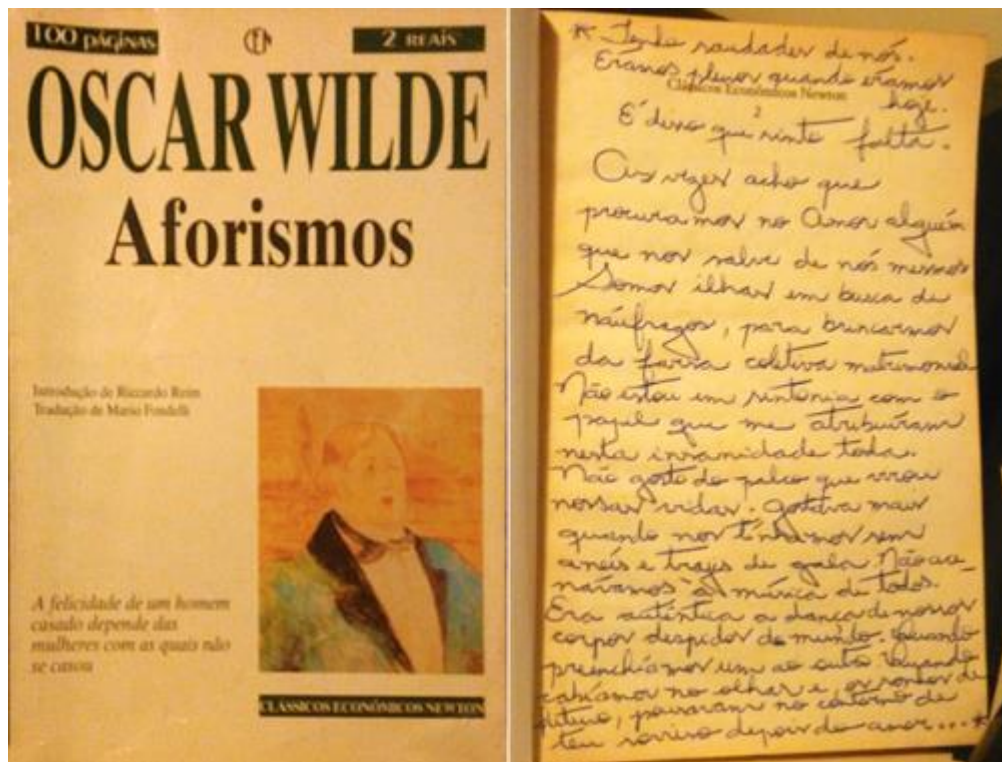 100 PÁGINAS
CEN
2 REAIS
OSCAR WILDE
Aforismos
Introdução de Riccardo Reim
Tradução de Mario Fondelli
A felicidade de um homem
casado depende das
mulheres com as quais não
se casou
CLÁSSICOS ECONÔMICOS NEWTON
* Tenho saudades de nós.
Éramos plenos quando éramos
Clássicos Econômicos Newton
hoje.
2
É disso que sinto falta.
Às vezes acho que
procuramos no Amor alguém
que nos salve de nós mesmos
Somos ilhas em busca de
náufragos, para brincarmos
da farsa coletiva matrimonial
Não estou em sintonia com o
papel que me atribuíram
nesta insanidade toda.
Não gosto do palco que virou
nossas vidas. Gostava mais
quando nos tínhamos sem
anéis e trajes de gala. Não ace_
návamos à música de todos.
Era autêntica a dança de nossos
corpos despidos do mundo. Quando
preenchíamos um ao outro. Quando
cabíamos no olhar e, os sonhos de
futuro, pousavam no contorno de
teu sorriso depois do amor...*